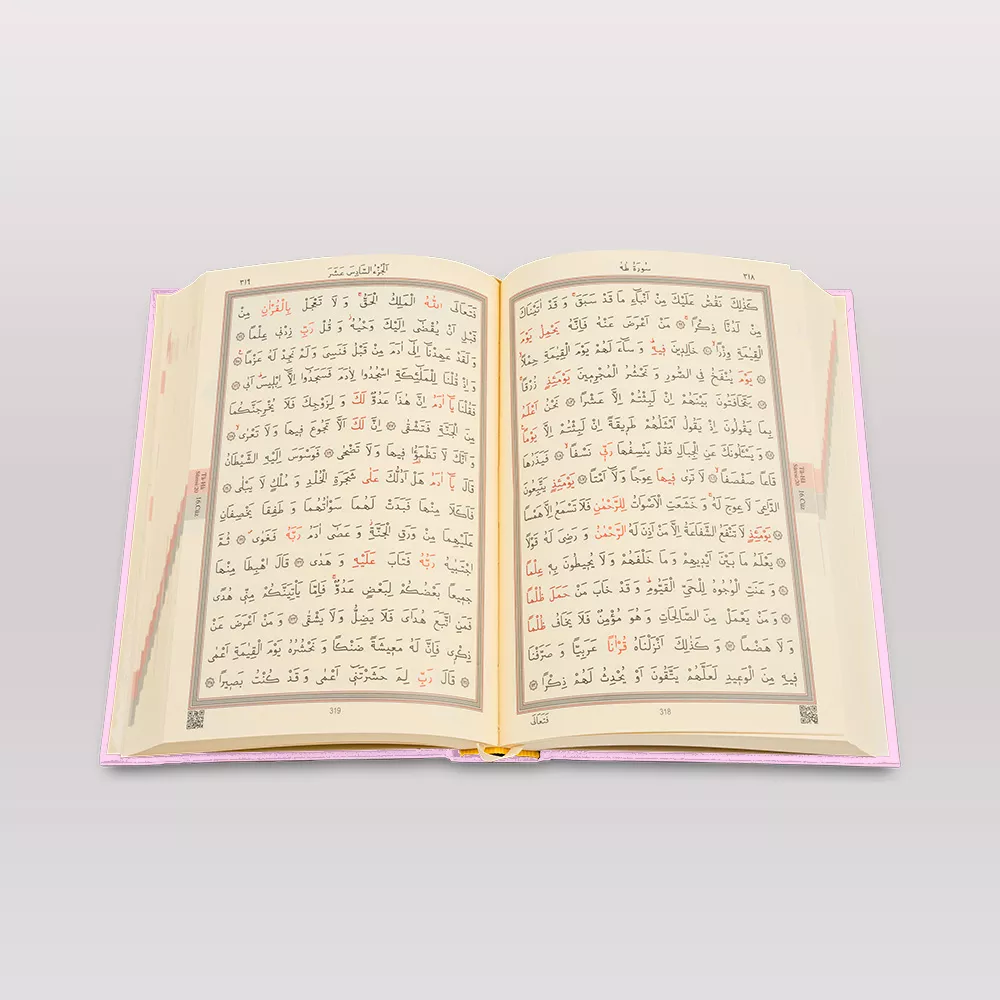 سورة طه
٣١٨
كَذٰلِكَ نَقُصُّ عَلَيْكَ مِنْ اَنْبَٓاءِ مَا قَدْ سَبَقَۚ وَ قَدْ اٰتَيْنَاكَ
مِنْ لَدُنَّا ذِكْرًاۚ ۞ مَنْ اَعْرَضَ عَنْهُ فَاِنَّهُ يَحْمِلُ يَوْمَ
الْقِيٰمَةِ وِزْرًاۙ ۞ خَالِدِينَ فِيهِۜ وَ سَٓاءَ لَهُمْ يَوْمَ الْقِيٰمَةِ حِمْلًاۙ
۞ يَوْمَ يُنْفَخُ فِي الصُّورِ وَ نَحْشُرُ الْمُجْرِمِينَ يَوْمَئِذٍ زُرْقًاۚ
۞ يَتَخَافَتُونَ بَيْنَهُمْ اِنْ لَبِثْتُمْ اِلَّا عَشْرًا ۞ نَحْنُ اَعْلَمُ
بِمَا يَقُولُونَ اِذْ يَقُولُ اَمْثَلُهُمْ طَرِيقَةً اِنْ لَبِثْتُمْ اِلَّا يَوْمًا۟
۞ وَ يَسْـَٔلُونَكَ عَنِ الْجِبَالِ فَقُلْ يَنْسِفُهَا رَبِّي نَسْفًاۙ ۞ فَيَذَرُهَا
قَاعًا صَفْصَفًاۙ ۞ لَا تَرٰى فِيهَا عِوَجًا وَلَٓا اَمْتًاۜ ۞ يَوْمَئِذٍ يَتَّبِعُونَ
الدَّاعِيَ لَا عِوَجَ لَهُۚ وَ خَشَعَتِ الْاَصْوَاتُ لِلرَّحْمٰنِ فَلَا تَسْمَعُ اِلَّا هَمْسًا
۞ يَوْمَئِذٍ لَا تَنْفَعُ الشَّفَاعَةُ اِلَّا مَنْ اَذِنَ لَهُ الرَّحْمٰنُ وَ رَضِيَ لَهُ قَوْلًا
۞ يَعْلَمُ مَا بَيْنَ اَيْدِيهِمْ وَ مَا خَلْفَهُمْ وَلَا يُحِيطُونَ بِهِ عِلْمًا
۞ وَ عَنَتِ الْوُجُوهُ لِلْحَيِّ الْقَيُّومِۜ وَ قَدْ خَابَ مَنْ حَمَلَ ظُلْمًا
۞ وَ مَنْ يَعْمَلْ مِنَ الصَّالِحَاتِ وَ هُوَ مُؤْمِنٌ فَلَا يَخَافُ ظُلْمًا
وَ لَا هَضْمًا ۞ وَ كَذٰلِكَ اَنْزَلْنَاهُ قُرْاٰنًا عَرَبِيًّا وَ صَرَّفْنَا
فِيهِ مِنَ الْوَعِيدِ لَعَلَّهُمْ يَتَّقُونَ اَوْ يُحْدِثُ لَهُمْ ذِكْرًا ۞
318
فَتَعَالَى
Tâ-Hâ
Sûresi 20
16.Cüz
٣١٩
اَلْجُزْءُ السَّادِسَ عَشَرَ
فَتَعَالَى اللّٰهُ الْمَلِكُ الْحَقُّۚ وَ لَا تَعْجَلْ بِالْقُرْاٰنِ مِنْ
قَبْلِ اَنْ يُقْضٰٓى اِلَيْكَ وَحْيُهُۘ وَ قُلْ رَبِّ زِدْنِي عِلْمًا ۞
وَ لَقَدْ عَهِدْنَٓا اِلٰٓى اٰدَمَ مِنْ قَبْلُ فَنَسِيَ وَلَمْ نَجِدْ لَهُ عَزْمًا۟ ۞
وَ اِذْ قُلْنَا لِلْمَلٰٓئِكَةِ اسْجُدُوا لِاٰدَمَ فَسَجَدُٓوا اِلَّٓا اِبْلِيسَۜ اَبٰى ۞
فَقُلْنَا يَٓا اٰدَمُ اِنَّ هٰذَا عَدُوٌّ لَكَ وَ لِزَوْجِكَ فَلَا يُخْرِجَنَّكُمَا
مِنَ الْجَنَّةِ فَتَشْقٰى ۞ اِنَّ لَكَ اَلَّا تَجُوعَ فِيهَا وَ لَا تَعْرٰىۙ ۞
وَ اَنَّكَ لَا تَظْمَؤُ۬ا فِيهَا وَلَا تَضْحٰى ۞ فَوَسْوَسَ اِلَيْهِ الشَّيْطَانُ
قَالَ يَٓا اٰدَمُ هَلْ اَدُلُّكَ عَلٰى شَجَرَةِ الْخُلْدِ وَ مُلْكٍ لَا يَبْلٰى ۞
فَاَكَلَا مِنْهَا فَبَدَتْ لَهُمَا سَوْاٰتُهُمَا وَ طَفِقَا يَخْصِفَانِ
عَلَيْهِمَا مِنْ وَرَقِ الْجَنَّةِۘ وَ عَصٰٓى اٰدَمُ رَبَّهُ فَغَوٰىۖ ۞ ثُمَّ
اجْتَبٰيهُ رَبُّهُ فَتَابَ عَلَيْهِ وَ هَدٰى ۞ قَالَ اهْبِطَا مِنْهَا
جَمِيعًا بَعْضُكُمْ لِبَعْضٍ عَدُوٌّۚ فَاِمَّا يَأْتِيَنَّكُمْ مِنِّي هُدًى
فَمَنِ اتَّبَعَ هُدَايَ فَلَا يَضِلُّ وَلَا يَشْقٰى ۞ وَ مَنْ اَعْرَضَ عَنْ
ذِكْرِي فَاِنَّ لَهُ مَعِيشَةً ضَنْكًا وَ نَحْشُرُهُ يَوْمَ الْقِيٰمَةِ اَعْمٰى
۞ قَالَ رَبِّ لِمَ حَشَرْتَنِٓي اَعْمٰى وَ قَدْ كُنْتُ بَصِيرًا ۞
319
Tâ-Hâ
Sûresi 20
16.Cüz